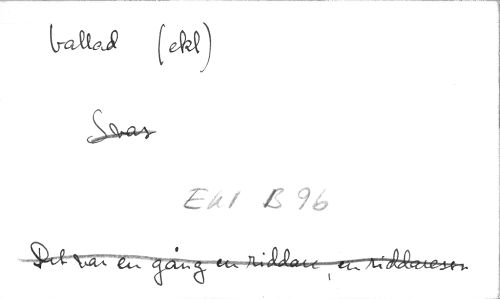 ballad (ekl)
Svar
Ekl B 96
Det var en gång en riddare, en riddaresen